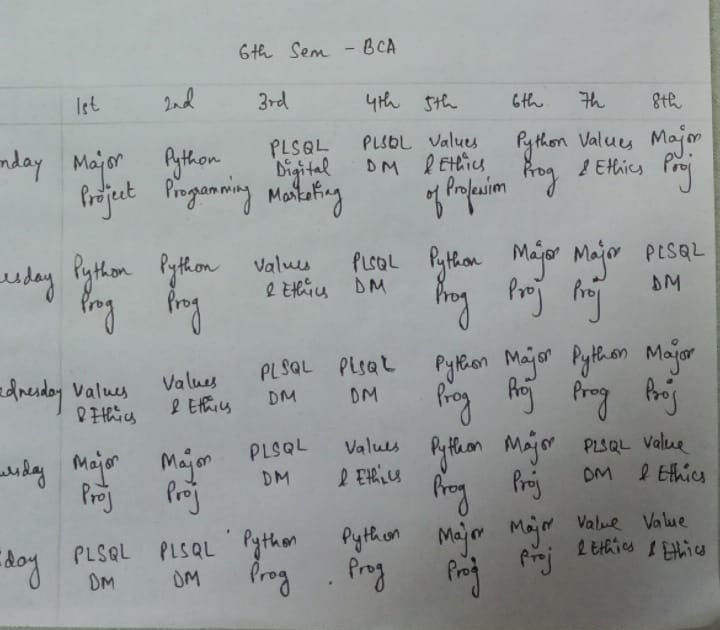 6th Sem - BCA
1st 2nd 3rd 4th 5th 6th 7th 8th
nday Major Project Python Programming PLSQL Digital Marketing PLSQL DM Values & Ethics of Profession Python Prog Values & Ethics Major Proj
esday Python Prog Python Prog Values & Ethics PLSQL DM Python Prog Major Proj Major Proj PLSQL DM
dnesday Values & Ethics Values & Ethics PLSQL DM PLSQL DM Python Prog Major Proj Python Prog Major Proj
ursday Major Proj Major Proj PLSQL DM Values & Ethics Python Prog Major Proj PLSQL DM Value & Ethics
day PLSQL DM PLSQL DM Python Prog Python Prog Major Proj Major Proj Value & Ethics Value & Ethics